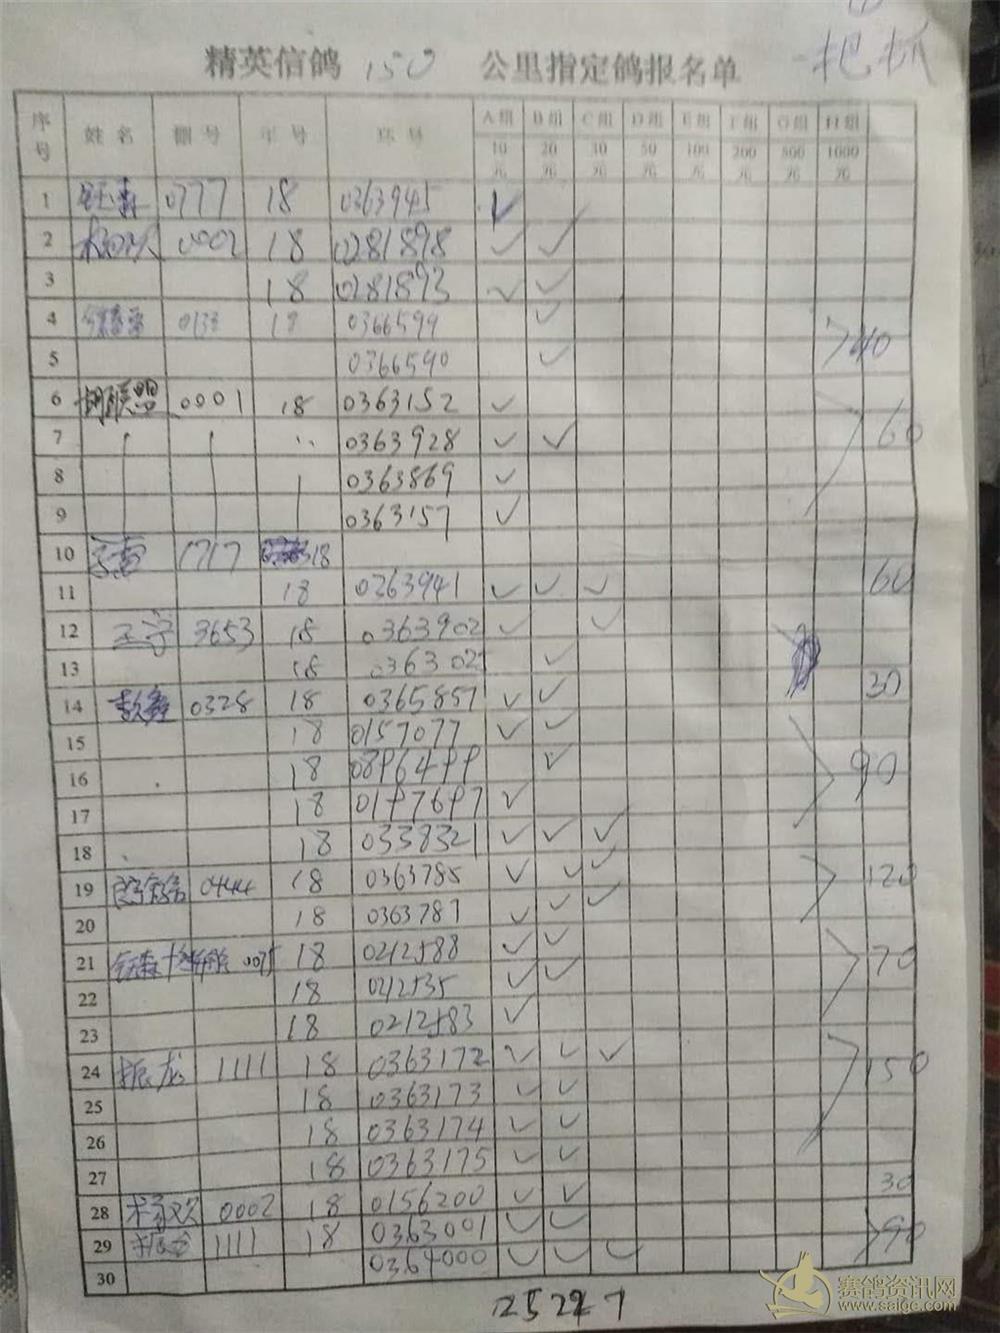 一把抓
精英信鸽 150 公里指定鸽报名单
序号 姓名 棚号 年号 环号 A组 B组 C组 D组 E组 F组 G组 H组
10元 20元 30元 50元 100元 200元 500元 1000元
1 0777 18 0363945 ✓
2 0002 18 0281898 ✓ ✓
3 18 0281893 ✓ ✓
4 18 0366599 ✓ 40
5 0366590 ✓
6 联盟 0001 18 0363152 ✓
7 0363928 ✓ ✓ 60
8 0363869 ✓
9 0363157 ✓
10 1717 18
11 18 0363941 ✓ ✓ ✓ 60
12 王宇 3653 18 0363902 ✓ ✓
13 18 ✓
14 0328 18 0365857 ✓ ✓ 30
15 18 0157077 ✓ ✓
16 18 0896499 ✓ 90
17 18 0197697 ✓
18 18 0338321 ✓ ✓ ✓
19 0444 18 0363785 ✓ ✓ ✓ 120
20 18 0363787 ✓ ✓ ✓
21 18 0212588 ✓ ✓ 70
22 18 0212535 ✓ ✓
23 18 0212583 ✓
24 振龙 1111 18 0363172 ✓ ✓ ✓ 150
25 18 0363173 ✓ ✓
26 18 0363174 ✓ ✓
27 18 0363175 ✓ ✓
28 0002 18 0156200 ✓ ✓ 30
29 1111 18 0363001 ✓ ✓ 90
30 0364000 ✓ ✓ ✓
赛鸽资讯网
www.saige.com